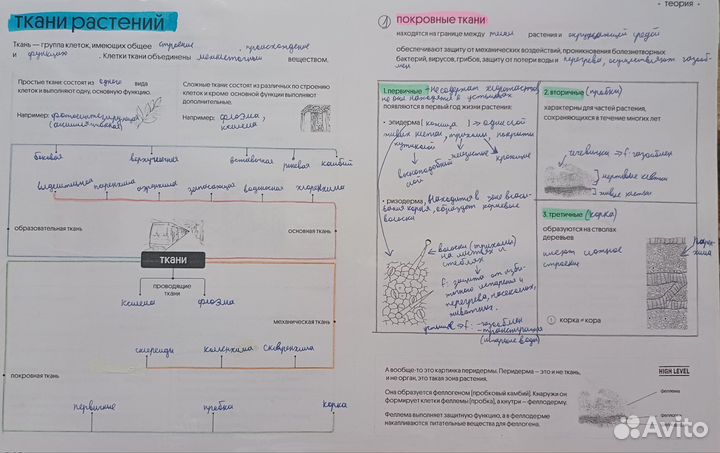 ткани растений
Ткань — группа клеток, имеющих общее строение, происхождение
и функцию. Клетки объединены межклеточным веществом.
Простые ткани состоят из одного вида
клеток и выполняют одну, основную функцию.
Например: фотосинтезирующая
(ассимиляционная)
Сложные ткани состоят из различных по строению
клеток и кроме основной функции выполняют
дополнительные.
Например: флоэма,
ксилема
боковая верхушечная вставочная раневая камбий
выделительная паренхима аэренхима запасающая водоносная хлоренхима
образовательная ткань
основная ткань
ткани
проводящие
ткани
ксилема флоэма
механическая ткань
склереиды колленхима склеренхима
покровная ткань
первичные пробка корка
• теория •
1 покровные ткани
находятся на границе между телом растения и окружающей средой
обеспечивают защиту от механических воздействий, проникновения болезнетворных
бактерий, вирусов, грибов, защиту от потери воды и перегрева, осуществляют газооб-
мен
1. первичные
появляются в первый год жизни растения:
• эпидерма (кожица) => один слой
живых клеток, трихомы, покрыты
кутикулой
• ризодерма, находится в зоне всасы-
вания корня, образует корневые
волоски
волоски (трихомы)
на листьях и
стеблях
f: защита от
перегрева, насекомых,
животных.
устьица => f: -газообмен
-транспирация
(испарение воды)
2. вторичные (пробка)
характерны для частей растения,
сохраняющихся в течение многих лет
чечевички => f: газообмен
мертвые клетки
живые клетки
3. третичные (корка)
образуются на стволах
деревьев
имеют сложное
строение
корка ≠ кора
А вообще-то это картинка перидермы. Перидерма — это и не ткань,
и не орган, это такая зона растения.
HIGH LEVEL
Она образуется феллогеном (пробковый камбий). Кнаружи он
формирует клетки феллемы (пробка), а кнутри — феллодерму.
Феллема выполняет защитную функцию, а в феллодерме
накапливаются питательные вещества для феллогена.
феллема
Avito